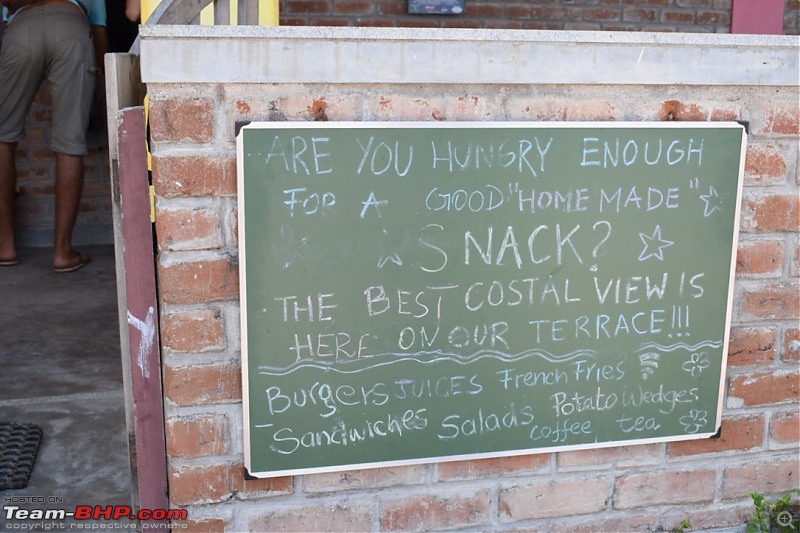 ARE YOU HUNGRY ENOUGH
FOR A GOOD "HOME MADE"
SNACK?
THE BEST COSTAL VIEW IS
HERE ON OUR TERRACE!!!
Burgers JUICES French Fries
- Sandwiches Salads Potato Wedges
coffee tea
HOSTED ON
Team-BHP.com
copyright respective owners